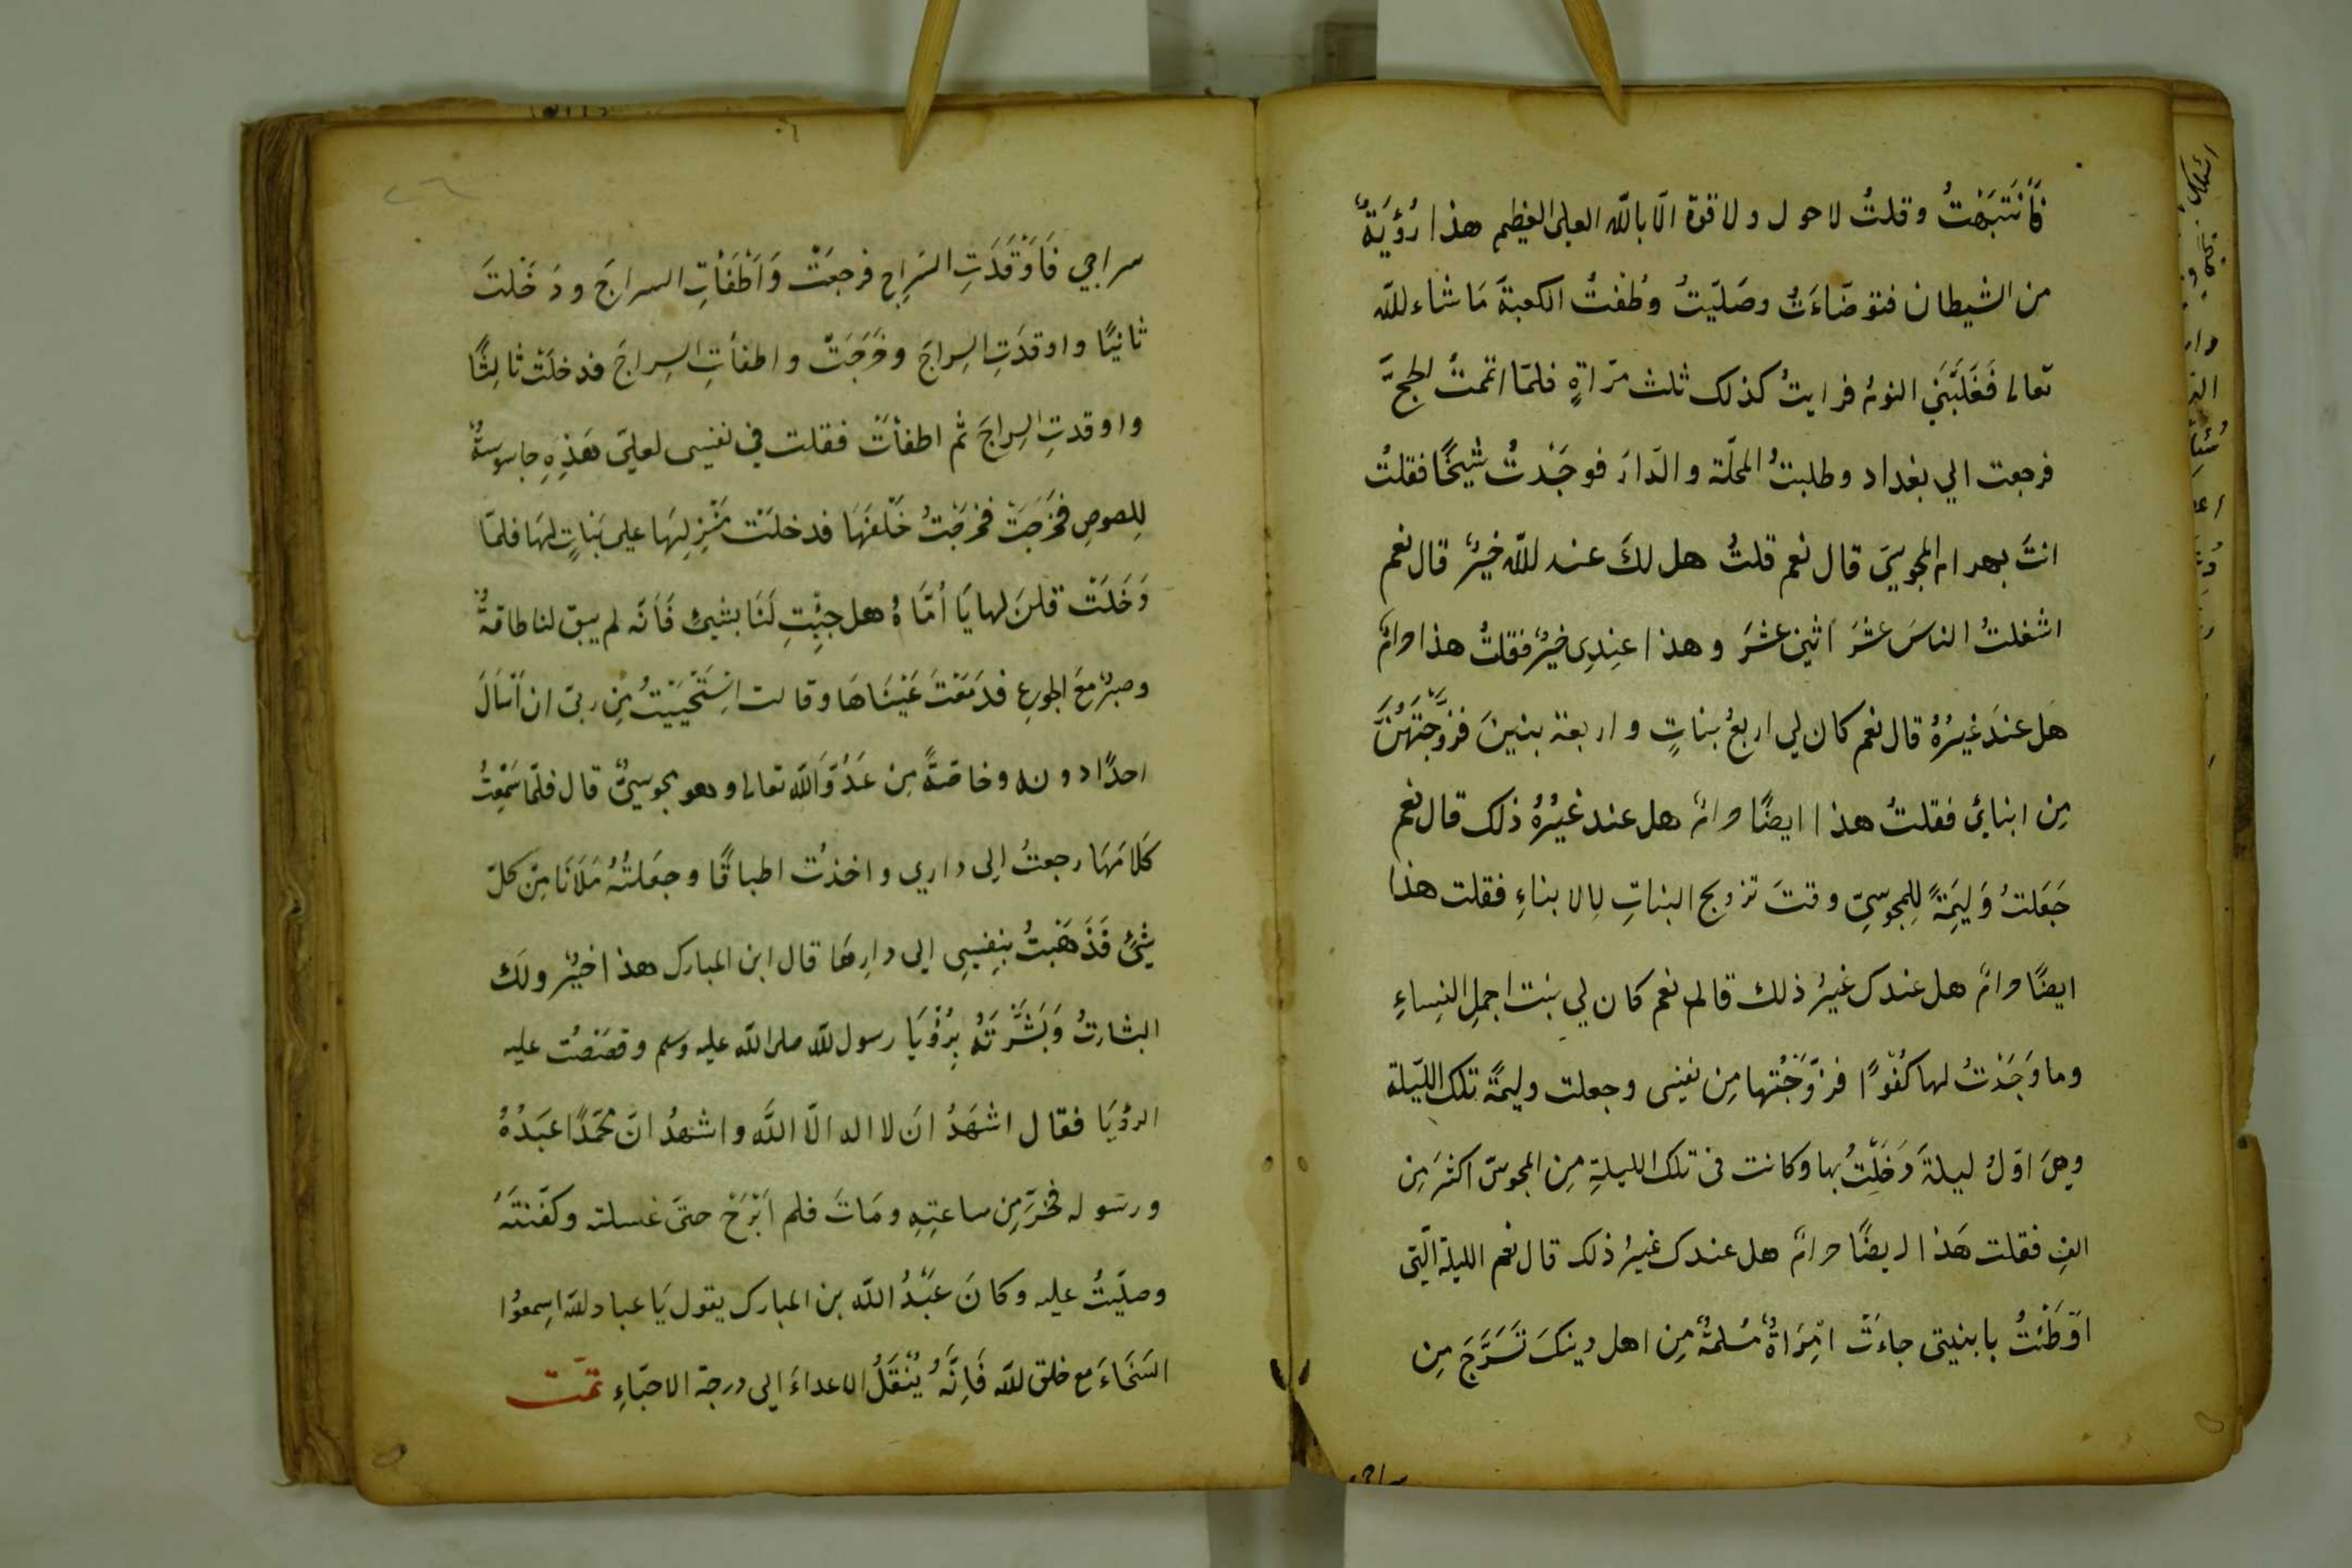 فَأَنْتَبَهْتُ وقلتُ لا حول ولا قوة الّا بالله العلى العظيم هذا رُؤْيَةٌ
من الشيطان فتوضّاءَتُ وصَلّيتُ وطُفتُ الكعبةَ مَا شاء لله
تعالى فَغَلَبَنِي النومُ فرايتُ كذلك ثلث مرّاةٍ فلمّا اتممتُ الحجَّ
فرجعت الي بغداد وطلبتُ المحلّة والدّارَ فوجَدْتُ شَيخًا فقلتُ
انتَ بهرام المجوسِيَ قال نعم قلتُ هل لكَ عند لله خيرٌ قال نعم
اشغلتُ الناسَ عشرَ اثني عشَرَ وهذا عِندِى خيرٌ فقلتُ هذا حرامٌ
هَل عندَ غيرُهُ قال نعم كان لي اربعُ بناتٍ واربعة بنينَ فزوَّجتَهُنَّ
مِن ابنائي فقلتُ هذا ايضًا حرامٌ هل عند غَيْرُهُ ذلك قال نعم
جَعَلتُ وَليَمِةً لِلمجوسِيّ وقتَ تزويج البناتِ لِالابناءِ فقلت هذا
ايضًا حرامٌ هل عندك غيرُ ذلك قال نعم كان لي بنت اجملِ النِساءِ
وما وَجَدْتُ لها كُفْوًا فزوَّجْتُها مِن نفسى وجعلت وليمةً تلك اللّيلة
وهِىَ اوّلُ ليلةَ دَخَلْتُ بها وكانت فى تلك الليلةِ مِن المجوسّ اكثرَ مِن
الفٍ فقلت هَذا ايضًا حرامٌ هل عندك غيرُ ذلك قال نعم الليلة الّتى
اوَّطَئْتُ بابنيتى جاءَتْ امْرَاةٌ مُسلمةٌ مِن اهل دينكَ تَسَرَّجَ مِن
سراجى
سراجي فَاَوْقَدَتِ السّرِاج فرجعَتْ وَاَطْفَأتِ السراجَ ودَخَلتَ
ثانيًا واوقدَتِ السِراجَ وخَرَجَتْ واطفأتِ السِراجَ فدخلَتْ ثالِثًا
واوقدتِ السِراجَ ثم اطفأتَ فقلت في نفسِى لعلىّ هَذِهِ جاسوسةٌ
لِلصوصِ فخَرَجَتْ فخرَجْتُ خَلْفَهَا فدخلَتْ مَنْزِلِهَا على بَنَاتٍ لهَا فلمّا
دَخَلَتْ قلنَ لها يَا اُمّاهُ هل جئتِ لَنَا بشيئٍ فَاَنّه لم يبق لنا طاقةٌ
وصبرٌ مَعَ الجوعِ فدَمَعْتَ عَيْنَاهَا وقالت اسْتَحْيَيْتُ مِن ربىّ ان اَسْاَلَ
احدًا دونه وخاصّةً مِن عَدُوَّ اللّه تعالى وهو مجوسِيٌّ قال فلمّا سَمِعْتُ
كَلامَهَا رجعتُ اِلى داري واخذتُ اطباقًا وجعَلتُهُ مَلَاَنَا مِنْ كلّ
شيْئٍ فَذَهَبْتُ بنِفسِى الى دارِهَا قال ابن المبارك هذا خيرٌ ولَك
البشارتُ وَبَشَّرْتَهُ بِرُؤْيَا رسول للّه صلى اللّه عليه وسلم وقصَصْتُ عليه
الرؤيَا فقال اشهَدُ انَ لا اله الّا اللّه واشهدُ انّ محمّدًا عَبَدُهُ
ورسَوله فخَرَّ مِن ساعتِهِ ومَاتَ فلم اَبْرَحْ حتىّ غسلته وكفّنتَهُ
وصليّتُ عليه وكانَ عَبْدُ اللّه بن المبارك يقول يَا عباد للّه اسِمعوُا
السَخَاءَ مع خلق للّه فَاِنَّهُ يُنْقَلُ الاعداءَ الى درجة الاحبّاءِ تمّت